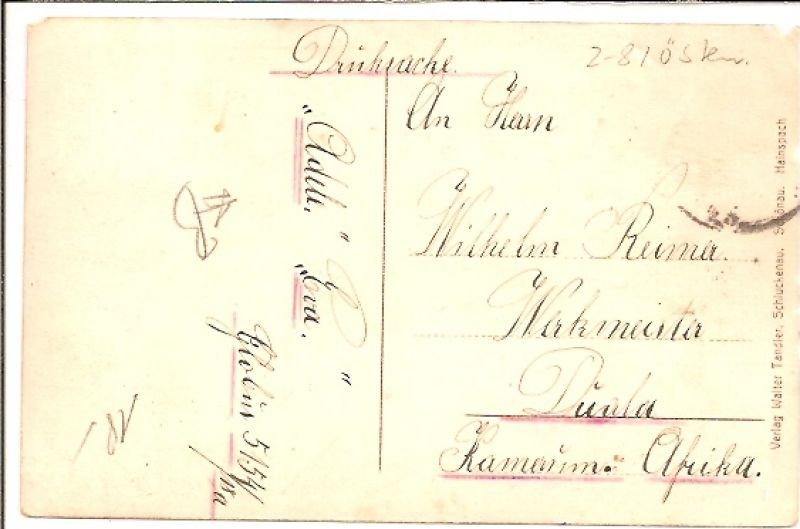 Drucksache.
2-81ÖSku.
An Herrn
Wilhelm Reimer.
Werkmeister
Duala
Kamerun. Afrika.
„Adele.“ „Eva.“
Globus 5154/
18a
Verlag Walter Tandler, Schluckenau. Schönau. Hainspach